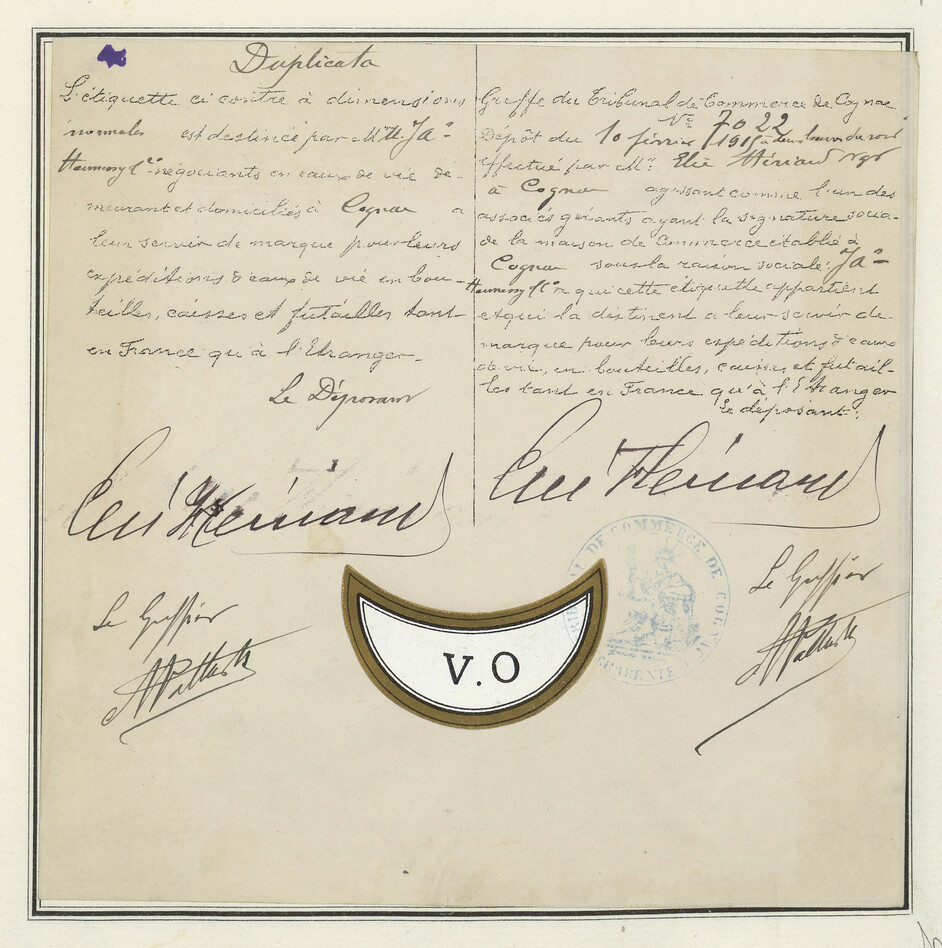 Duplicata
L'étiquette ci contre à dimensions
normales est destinée par MM. Jas
Hennessy & Co négociants en eaux de vie de-
meurant et domiciliés à Cognac a
leur servir de marque pour leurs
expéditions d'eaux de vie en bou-
teilles, caisses et futailles tant
en France qu'à l'Etranger.
Le Déposant
Greffe du Tribunal de Commerce de Cognac
No 7022
Dépôt du 10 février 1915 à deux heures du soir
effectué par Mr. Elie Hériard Ngt
à Cognac agissant comme l'un des
associés gérants ayant la signature socia-
le de la maison de Commerce établie à
Cognac sous la raison sociale: Jas
Hennessy & Co a qui cette étiquette appartient
et qui la destinent a leur servir de
marque pour leurs expéditions d'eaux
de vie, en bouteilles, caisses et futail-
les tant en France qu'à l'Etranger
Le déposant:
Elie Hériard
Elie Hériard
Le Greffier
Le Greffier
V.O
TRIBUNAL DE COMMERCE DE COGNAC
CHARENTE